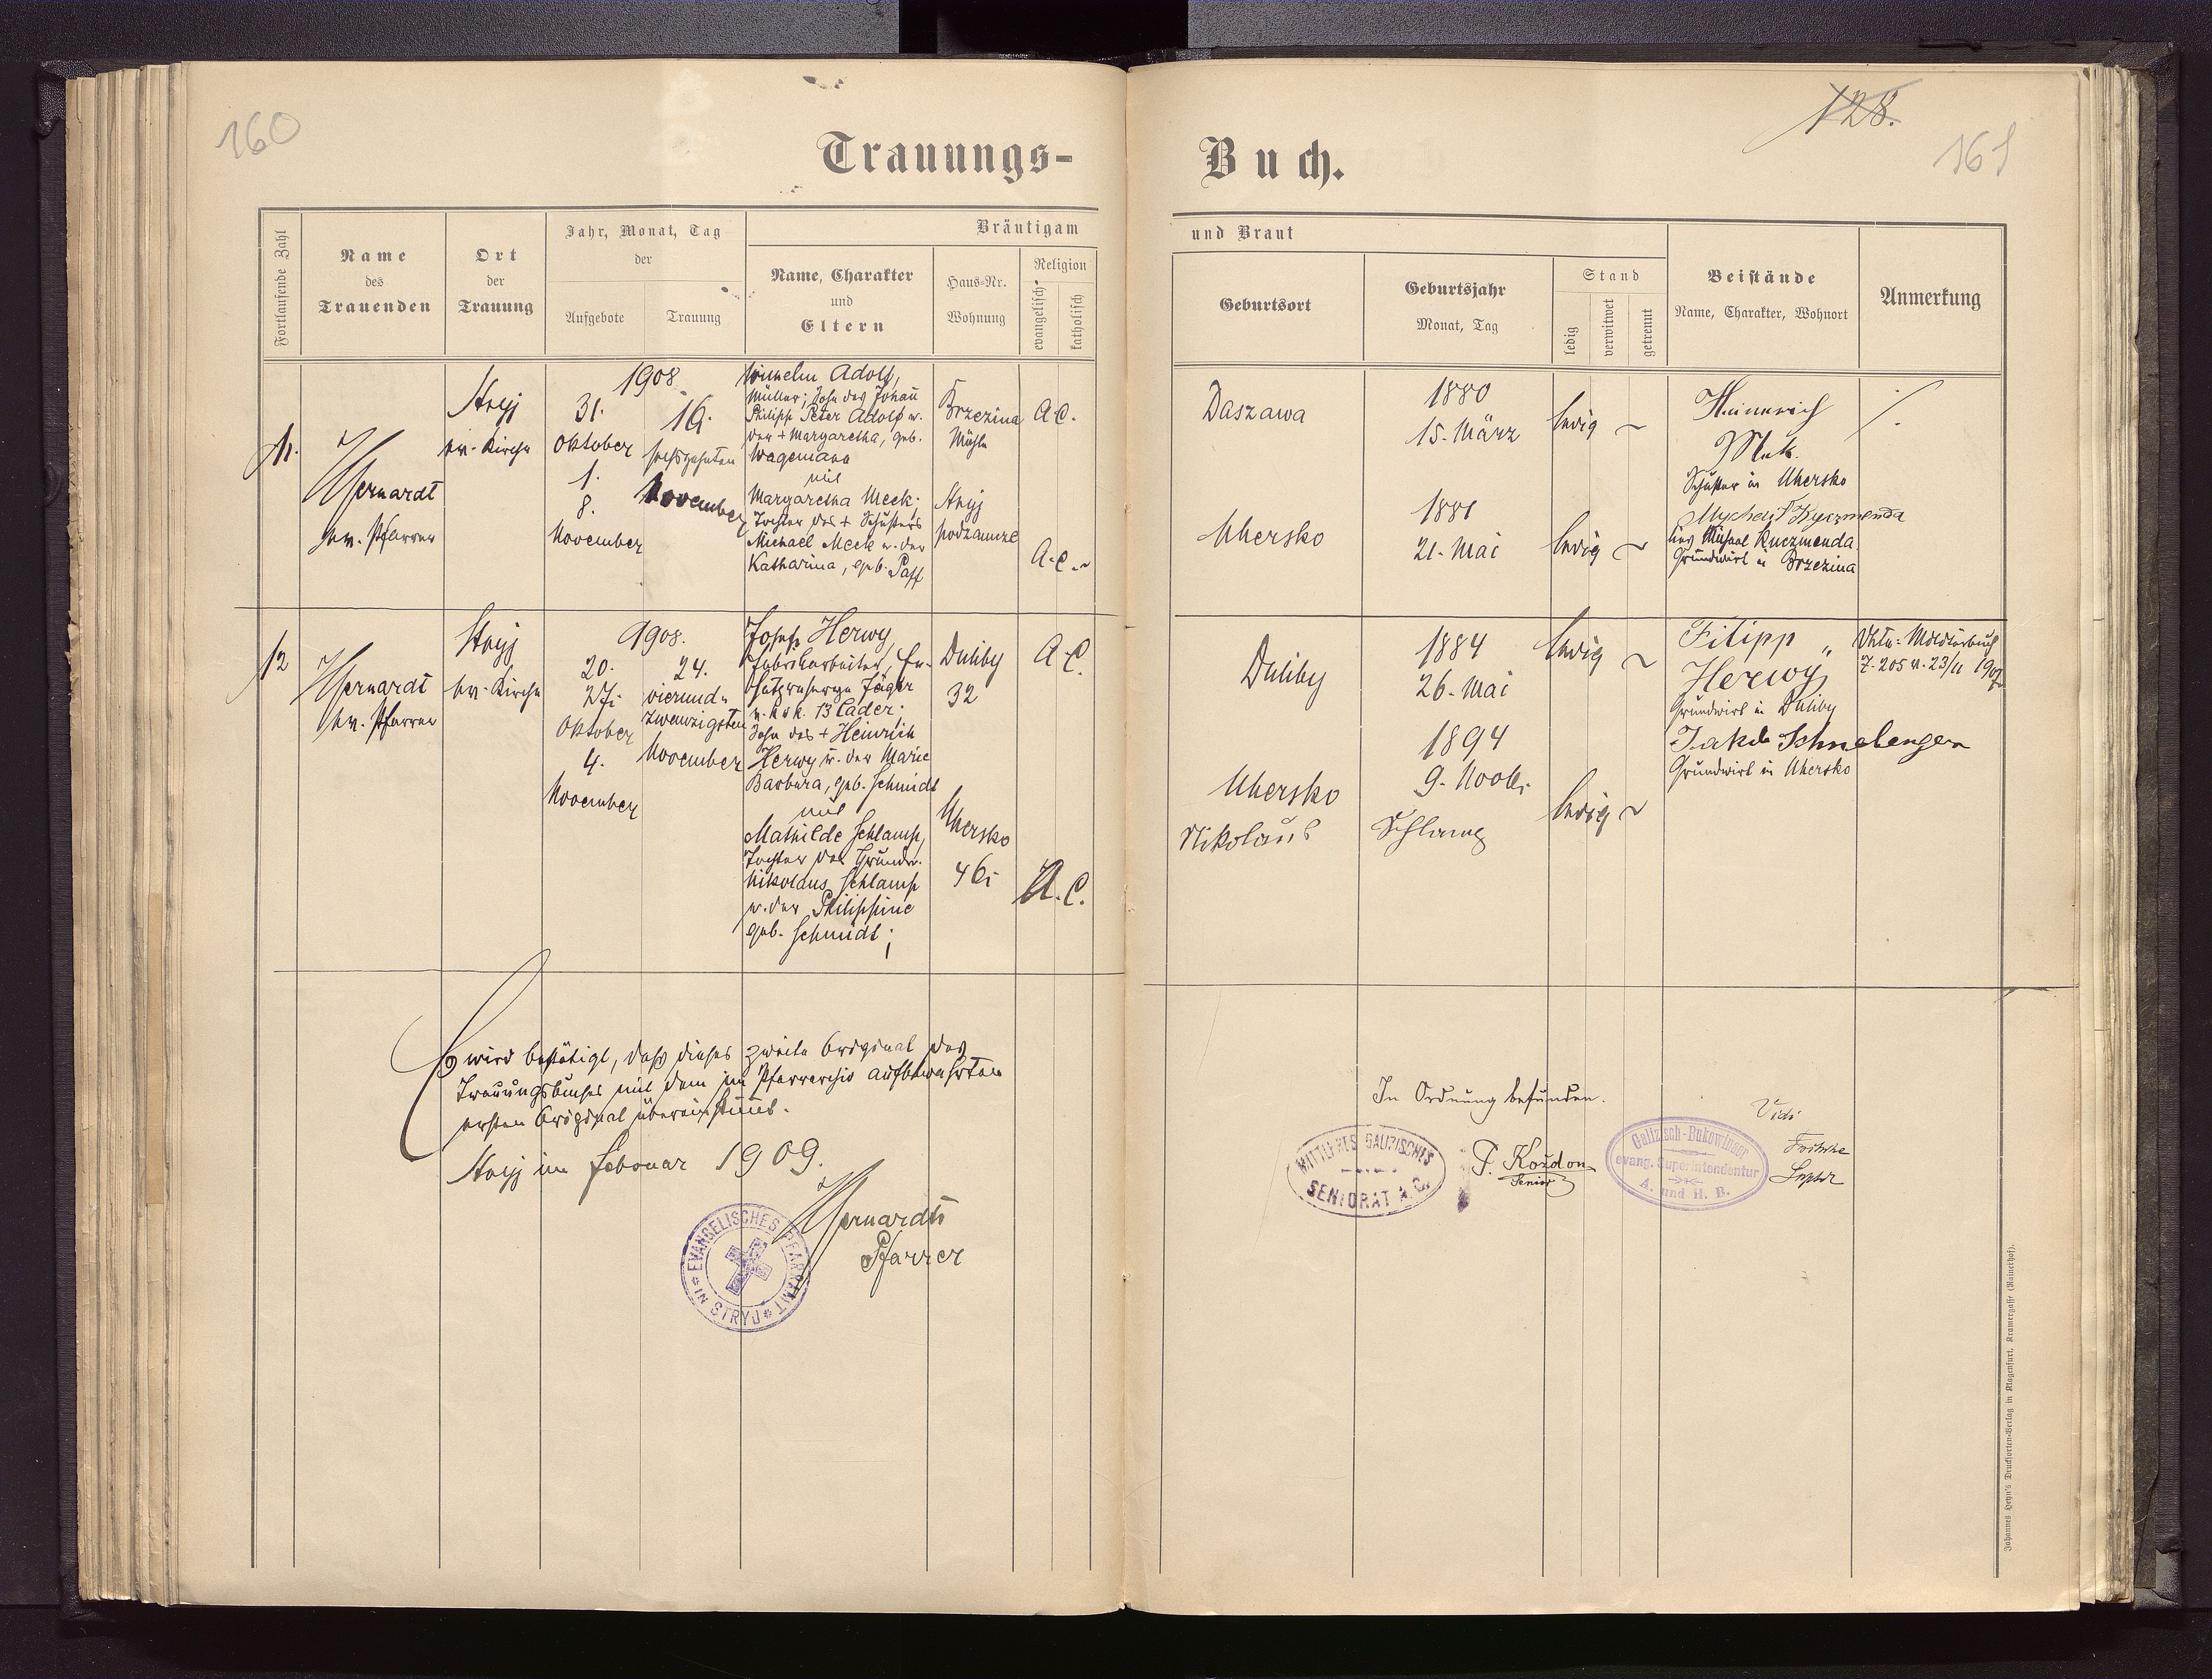 160
Trauungs-
Fortlaufende Zahl
Name
des
Trauenden
Ort
der
Trauung
Jahr, Monat, Tag
der
Aufgebote
Trauung
Bräutigam
Name, Charakter
und
Eltern
Haus-Nr.
Wohnung
Religion
evangelisch
katholisch
11.
ev. Pfarrer
Stryj
ev. Kirche
1908
31.
Oktober
1.
8.
November
16.
sechszehnten
November
Wilhelm Adolf,
Müller; Sohn des Johann
Philipp Peter Adolf u.
der + Margaretha, geb.
Wagemann
mit
Margaretha Meck;
Tochter des + Schusters
Michael Meck u. der
Katharina, geb. Paff
Brzezina
Mühle
Stryj
podzamcze
A.C.
A.C.
12
ev. Pfarrer
Stryj
ev. Kirche
1908.
20.
27.
Oktober
4.
November
24.
vierund-
zwanzigsten
November
Josef Herwy,
Fabriksarbeiter, Er-
satzreserve Jäger
13
Sohn des + Heinrich
Herwy u. der Marie
Barbara, geb. Schmidt
mit
Mathilde Schlamp,
Tochter des Grundw.
Nikolaus Schlamp
u. der Philippine
geb. Schmidt;
Duliby
32
Uhersko
46;
A.C.
A.C.
Es wird bestätigt, daß dieses zweite Original des
Trauungsbuches mit dem im Pfarrarchiv aufbewahrten
ersten Original übereinstimmt.
Stryj im Februar 1909.
Pfarrer
EVANGELISCHES PFARRAMT
IN STRYJ
128.
161
Buch.
und Braut
Geburtsort
Geburtsjahr
Monat, Tag
Stand
ledig
verwitwet
getrennt
Beistände
Name, Charakter, Wohnort
Anmerkung
Daszawa
1880
15. März
ledig
Heinrich
Schuster in Uhersko
Uhersko
1881
21. Mai
ledig
Michael Kuczmenda
Grundwirt in Brzezina
Duliby
1884
26. Mai
ledig
Filipp
Herwy
Grundwirt in Duliby
Z. 205 v. 23/11
Uhersko
1894
9. Novb.
ledig
Jakob Schneberger
Grundwirt in Uhersko
Nikolaus Schlamp
In Ordnung befunden.
MITTLERES GALIZISCHES
SENIORAT A.C.
Senior
Galizisch-Bukowinaer
evang. Superintendentur
A. und H. B.
Vidi
Fritsche
Suptdt
Johannes Heyn's Drucksorten-Verlag in Klagenfurt, Kramergasse (Rainerhof).